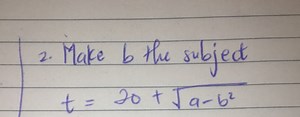 2. Make b the subject
t = 20 + √a-b²